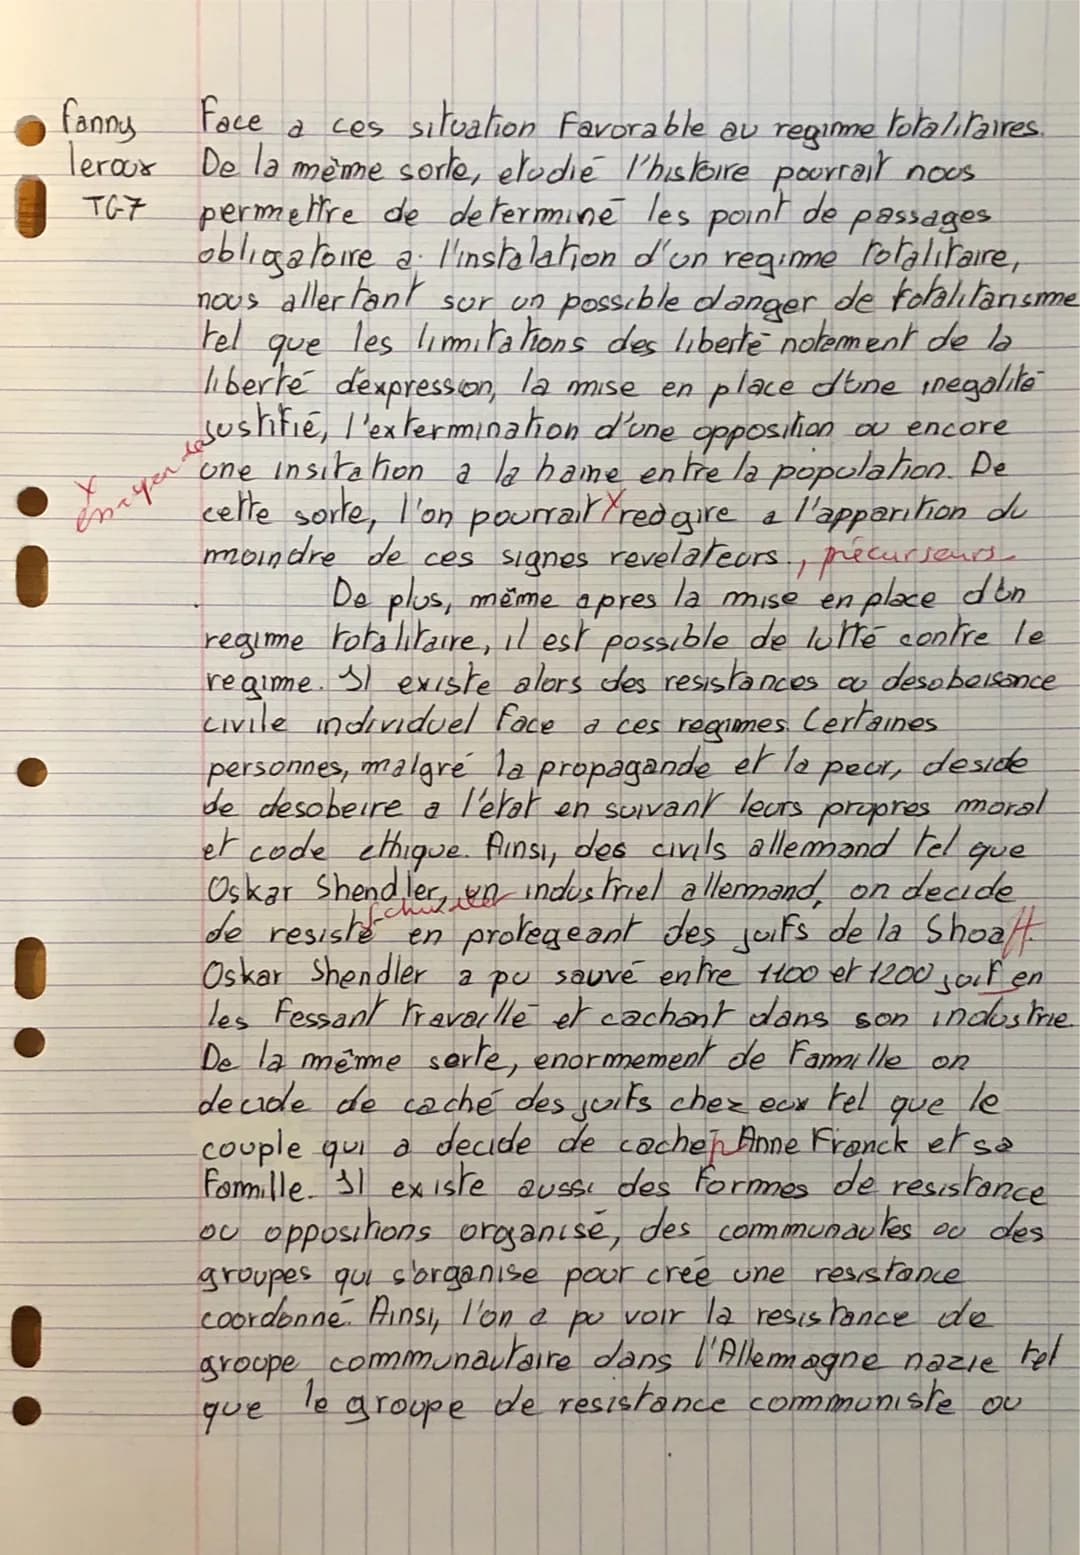 fanny
leroux
TG7
Face a ces situation favorable au regimme totalitaires.
De la même sorte, etudié l'histoire pourrait nous
permettre de determiné les point de passages
obligatoire a l'instalation d'un regimme totalitaire,
nous allertant sur un possible danger de totalitarisme
tel que les limitations des liberté notement de la
liberté d'expression, la mise en place d'une inegalité
justifié, l'extermination d'une opposition ou encore
une insitation a la haine entre la population. De
cette sorte, l'on pourrait X redgire a l'apparition du
X
moindre de ces signes revelateurs., précurseurs
De plus, même apres la mise en place d'un
regimme totalitaire, il est possible de lutté contre le
regime. Il existe alors des resistances ou desobeisance
civile individuel face a ces regimes. Certaines
personnes, malgré la propagande et la peur, deside
de desobeire a l'etat en suivant leurs propres moral
et code ethique. Ainsi, des civils allemand tel que
Oskar Shendler, un industriel allemand, on decide
de resisté en protegeant des juifs de la Shoah.
Oskar Shendler a pu sauvé entre 1100 et 1200 juif en
les fessant travaillé et cachant dans son industrie.
De la même sorte, enormement de famille on
decide de caché des juifs chez eux tel que le
couple qui a decide de cacher Anne Franck et sa
famille. Il existe aussi des formes de resistance
ou oppositions organisé, des communautes ou des
groupes qui s'organise pour creé une resistance
coordonné. Ainsi, l'on a pu voir la resistance de
groupe communautaire dans l'Allemagne nazie tel
que le groupe de resistance communiste ou